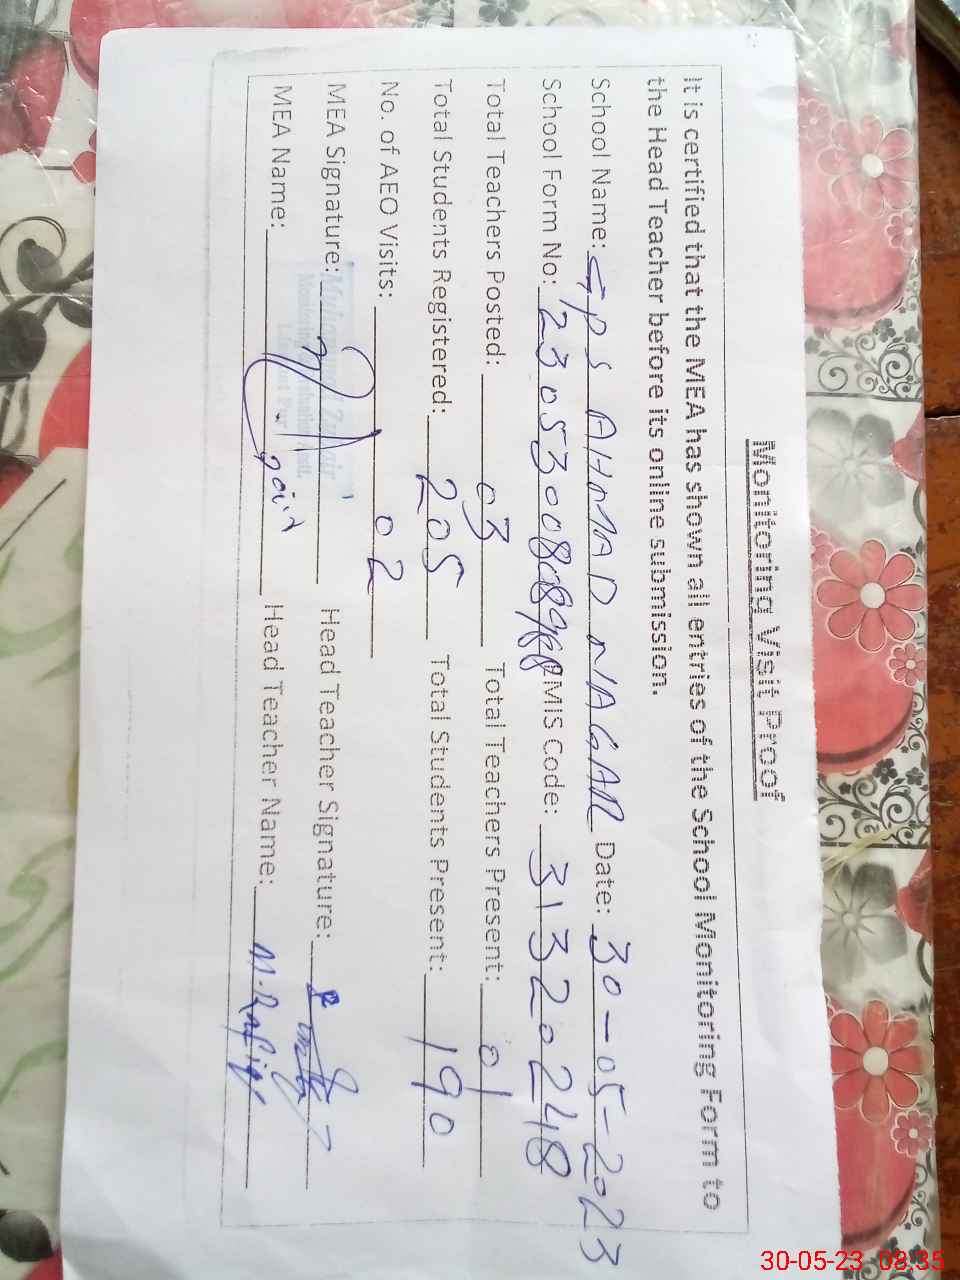 Monitoring Visit Proof
It is certified that the MEA has shown all entries of the School Monitoring Form to
the Head Teacher before its online submission.
School Name: GPS AHMAD NAGAR Date: 30-05-2023
School Form No: MIS Code: 31320248
Total Teachers Posted: 03 Total Teachers Present: 01
Total Students Registered: 205 Total Students Present: 190
No. of AEO Visits: 02
MEA Signature: Head Teacher Signature:
MEA Name: Head Teacher Name: M. Rafiq
30-05-23 08:35